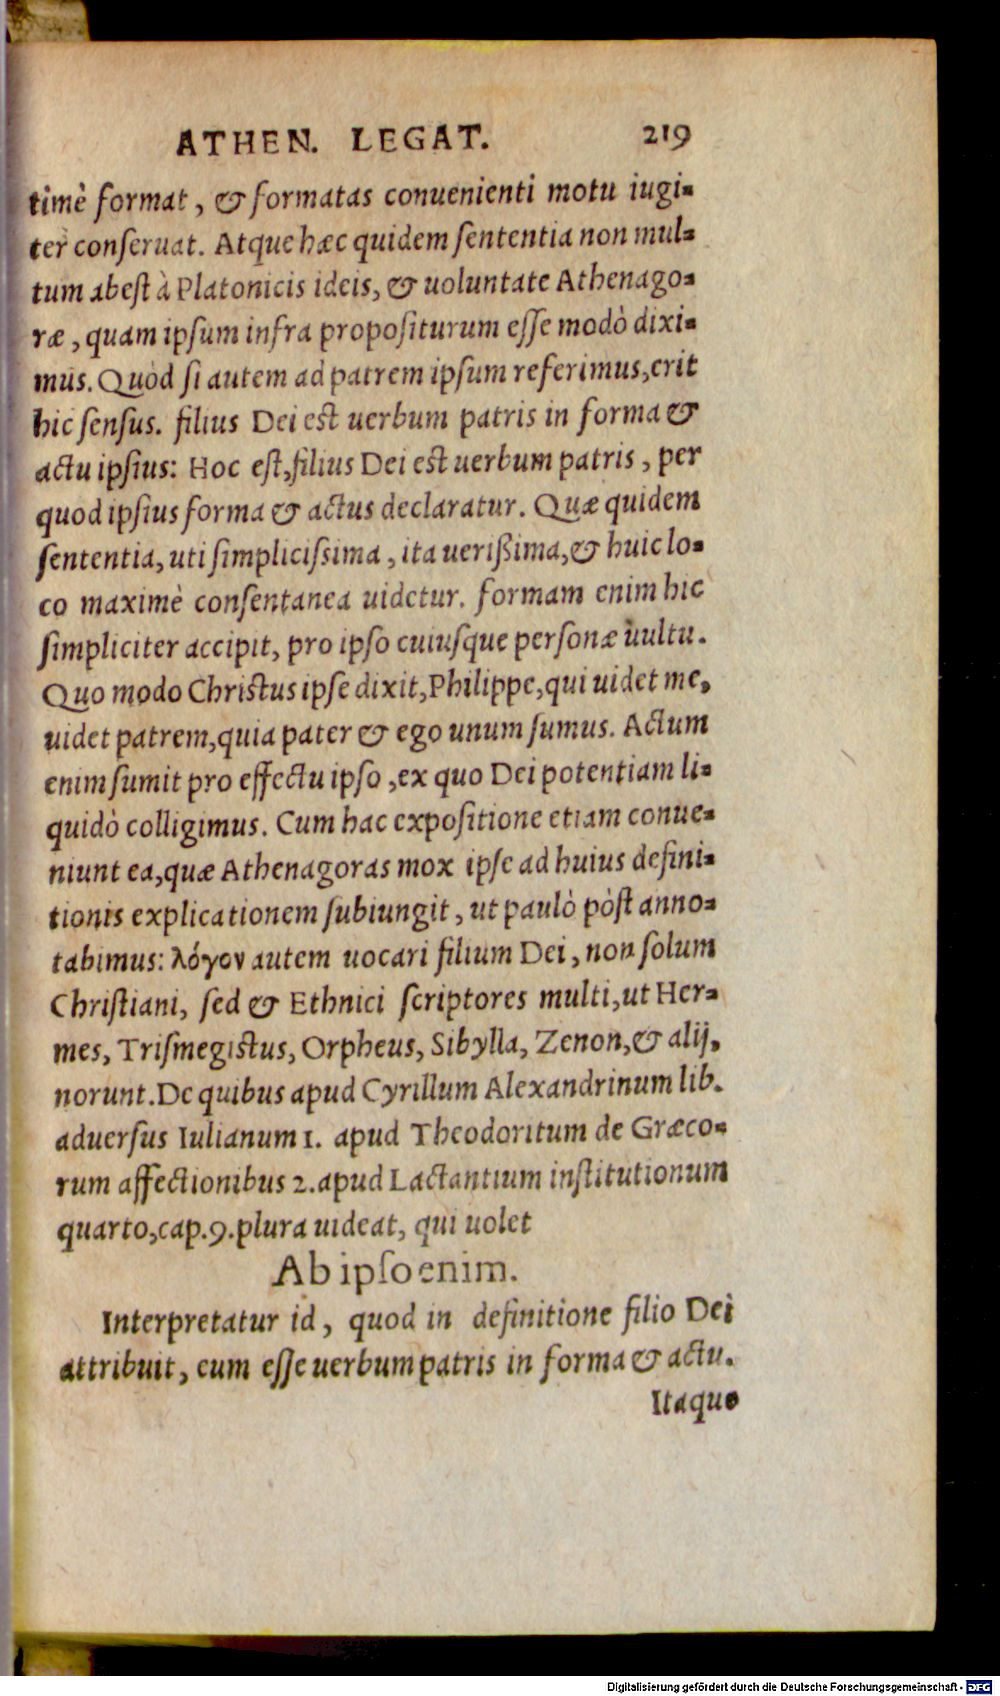 ATHEN. LEGAT. 219
timè format, & formatas conuenienti motu iugi-
ter conſeruat. Atque hæc quidem ſententia non mul-
tum abeſt à Platonicis ideis, & uoluntate Athenago-
ræ, quam ipſum infra propoſiturum eſſe modò dixi-
mus. Quòd ſi autem ad patrem ipſum referimus, erit
hic ſenſus. filius Dei eſt uerbum patris in forma &
actu ipſius: Hoc eſt, filius Dei eſt uerbum patris, per
quod ipſius forma & actus declaratur. Quæ quidem
ſententia, uti ſimpliciſsima, ita ueriſſima, & huic lo-
co maximè conſentanea uidetur. formam enim hic
ſimpliciter accipit, pro ipſo cuiuſque perſonæ uultu.
Quo modo Chriſtus ipſe dixit, Philippe, qui uidet me,
uidet patrem, quia pater & ego unum ſumus. Actum
enim ſumit pro effectu ipſo, ex quo Dei potentiam li-
quidò colligimus. Cum hac expoſitione etiam conue-
niunt ea, quæ Athenagoras mox ipſe ad huius defini-
tionis explicationem ſubiungit, ut paulò pòſt anno-
tabimus: λόγον autem uocari filium Dei, non ſolum
Chriſtiani, ſed & Ethnici ſcriptores multi, ut Her-
mes, Triſmegiſtus, Orpheus, Sibylla, Zenon, & alij,
norunt. De quibus apud Cyrillum Alexandrinum lib.
aduerſus Iulianum 1. apud Theodoritum de Græco-
rum affectionibus 2. apud Lactantium inſtitutionum
quarto, cap. 9. plura uideat, qui uolet
Ab ipſo enim.
Interpretatur id, quod in definitione filio Dei
attribuit, eum eſſe uerbum patris in forma & actu.
Itaque
Digitalisierung gefördert durch die Deutsche Forschungsgemeinschaft - DFG